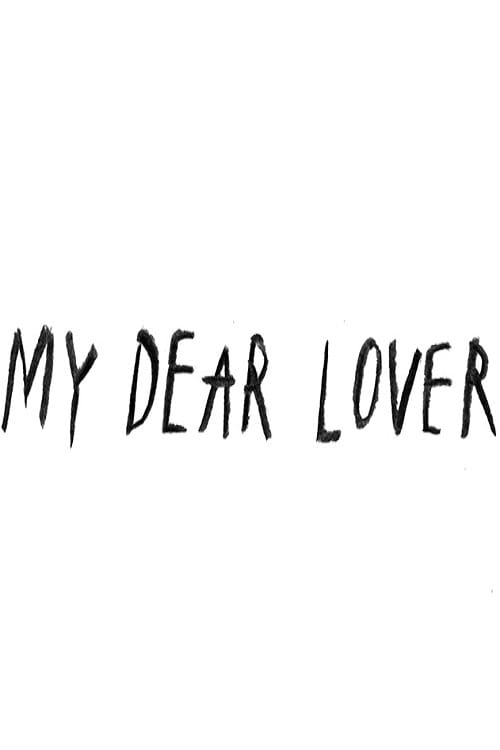 MY DEAR LOVER